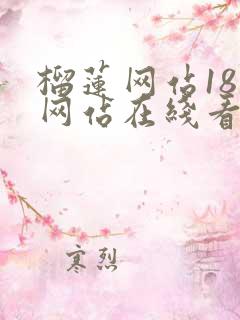 榴莲网佔18
网佔在线看
寒烈